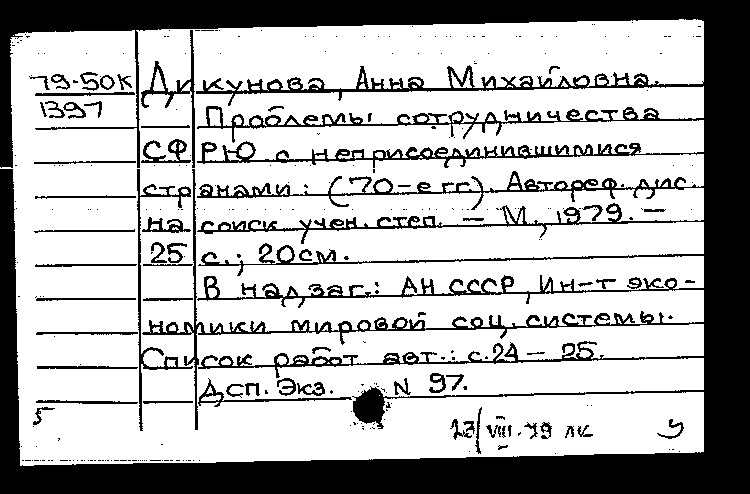 79-50К Дикунова, Анна Михайловна.
1397 Проблемы сотрудничества
СФРЮ с неприсоединившимися
странами: (70-е гг). Автореф. дис.
на соиск учен. степ. — М., 1979. —
25 с.; 20см.
В надзаг.: АН СССР, Ин-т эко-
номики мировой соц. системы.
Список работ авт.: с.24 — 25.
Дсп. Экз. N 97.
5
23/VIII.79 лк